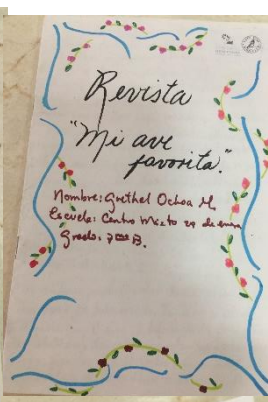 Revista
"Mi ave
favorita".
Nombre: Grethel Ochoa M.
Escuela: Centro Mixto 29 de enero
Grado: 7mo B.